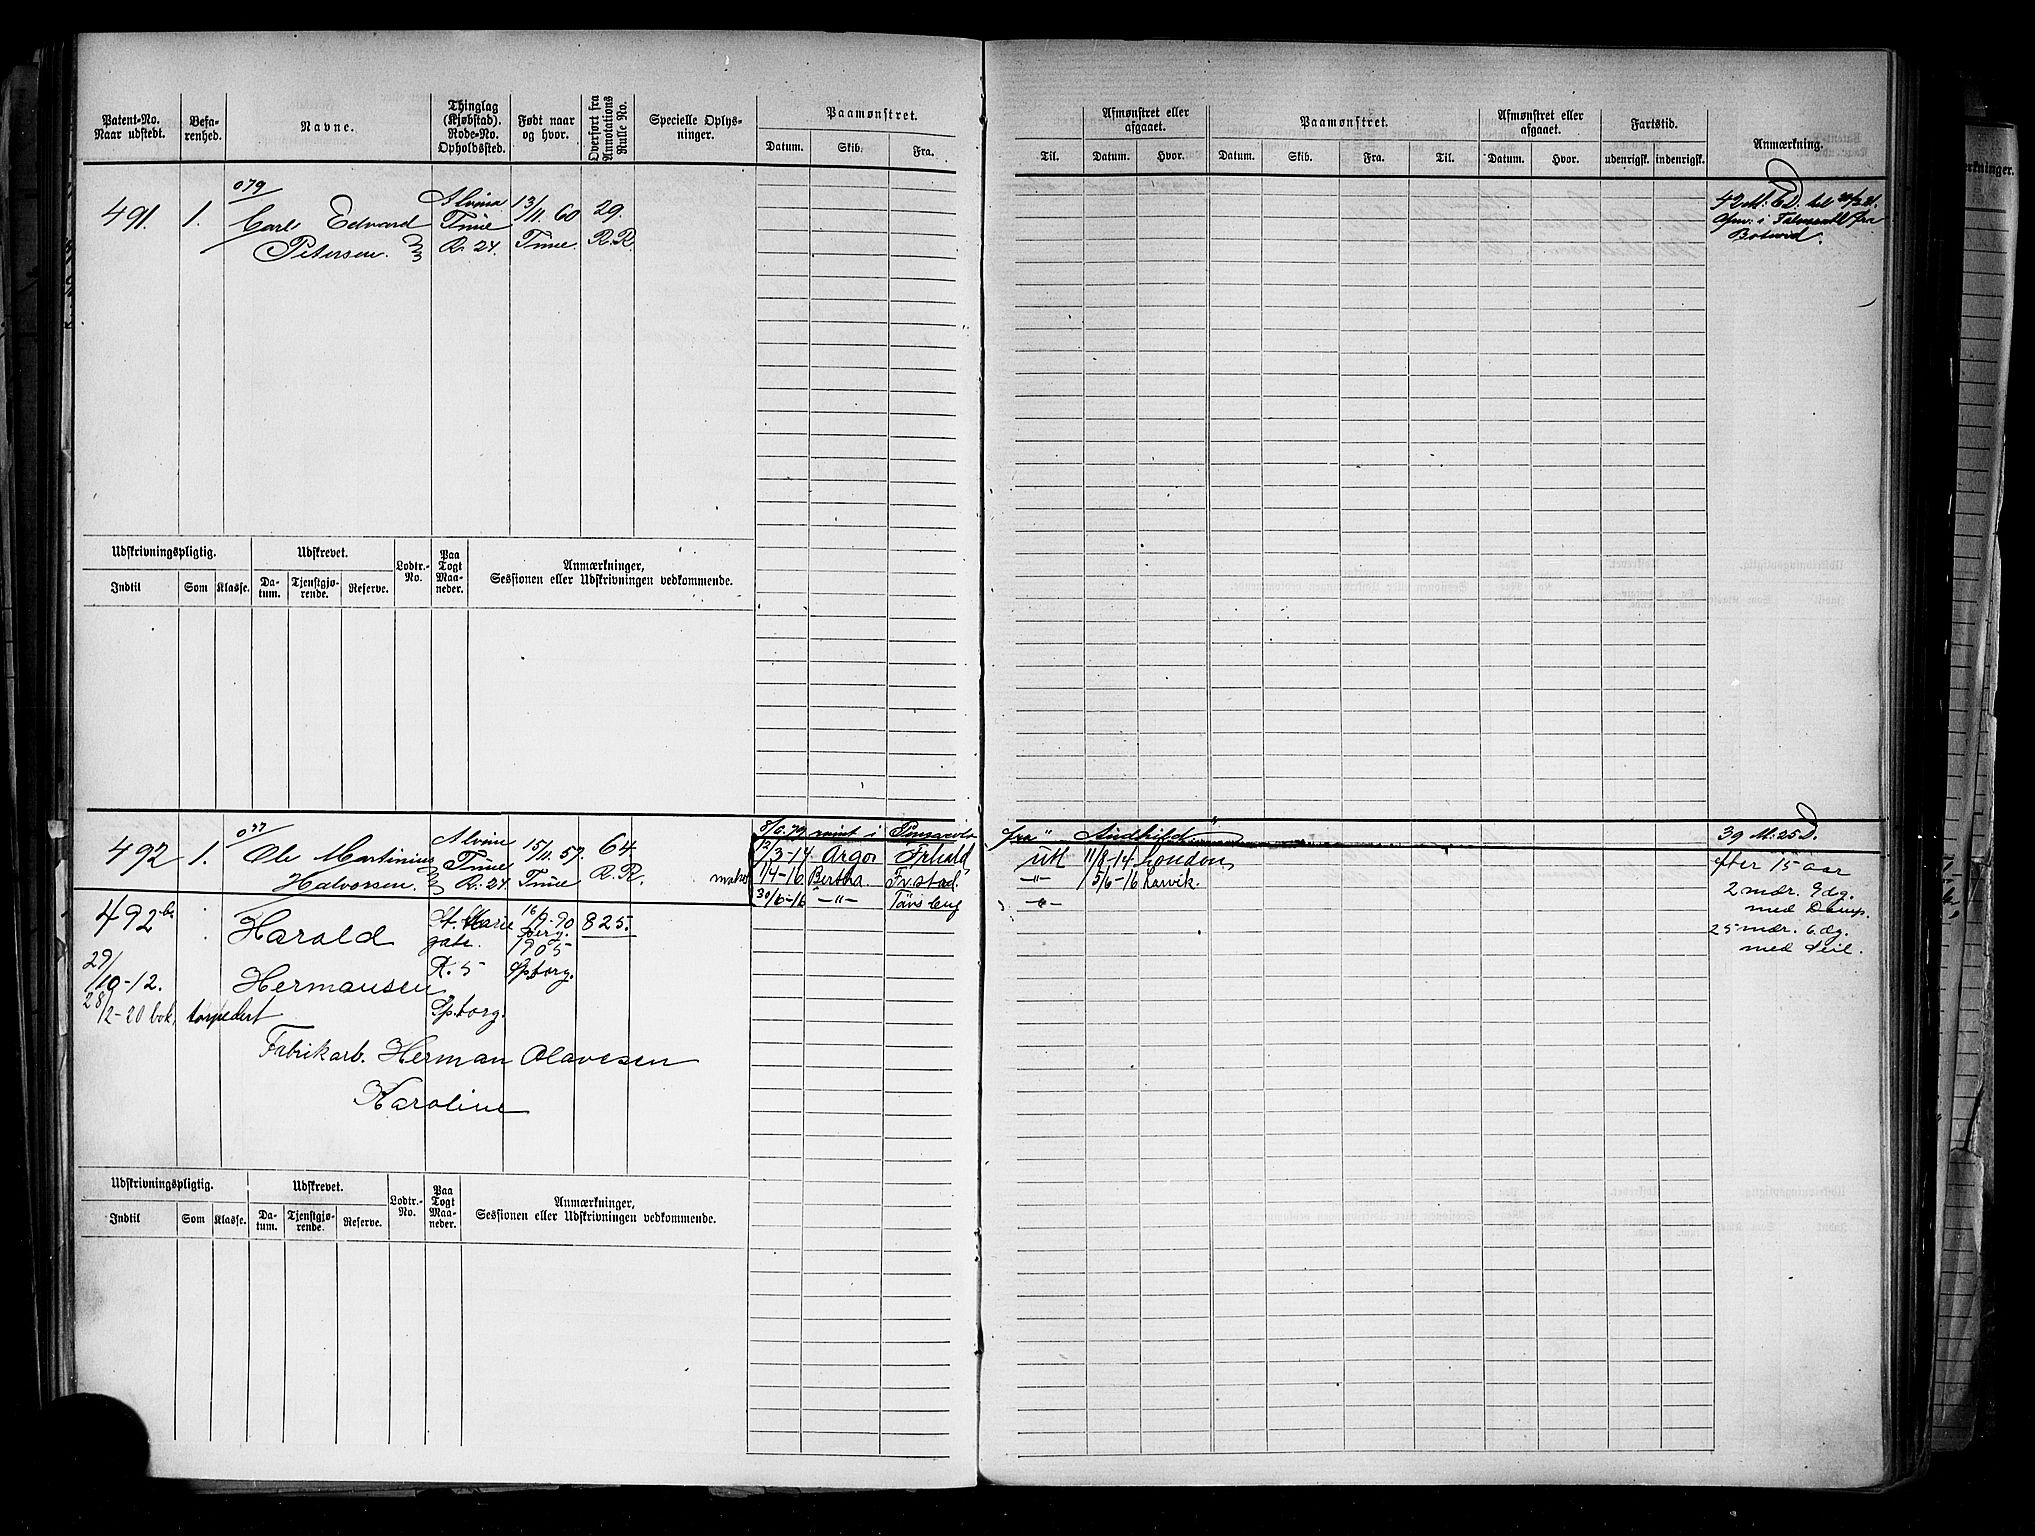 Patent-No. Naar udstedt.
Befarenhed.
Navne.
Thinglag (Kjøbstad). Rode-No. Opholdssted.
Født naar og hvor.
Overført fra Annotations Rulle No.
Specielle Oplysninger.
Paamønstret.
Datum. Skib. Fra.
Til.
Afmønstret eller afgaaet.
Datum. Hvor.
Paamønstret.
Datum. Skib. Fra. Til.
Afmønstret eller afgaaet.
Datum. Hvor.
Fartstid.
udenrigsk. indenrigsk.
Anmærkning.
079
491. 1. Carl Edvard
Petersen.
Tune
R. 24.
13/11. 60
Tune
29.
R.R.
Botwid.
Udskrivningspligtig.
Indtil Som Klasse.
Udskrevet.
Datum. Tjenstgjørende. Reserve.
Lodtr.-No.
Paa Togt Maaneder.
Anmærkninger,
Sessionen eller Udskrivningen vedkommende.
077
492 1. Ole Martinius
Halvorsen.
Tune
R. 24.
15/11. 57
Tune
64
R.R.
8/6.79 rømt i Pensacola fra "Andhild"
12/3-14 Argo Frhald Utl 11/8-14 London
1/4-16 Bertha. Fr.stad. -"- 5/6-16 Larvik.
30/6-16 -"- Tønsberg -"-
39 M: 25 D.
efter 15 aar
2 mdr. 9 dg.
med Damp.
25 mdr. 6 dg.
med Seil.
492 b
Harold
Hermansen
St. Marie
gate.
R. 5
Sp.borg.
16/9-90
1905
Sp.borg.
825.
29/10-12.
28/2-20 bok, torpedert
Fabrikarb. Herman Olavesen
Karoline
Udskrivningspligtig.
Indtil Som Klasse.
Udskrevet.
Datum. Tjenstgjørende. Reserve.
Lodtr.-No.
Paa Togt Maaneder.
Anmærkninger,
Sessionen eller Udskrivningen vedkommende.